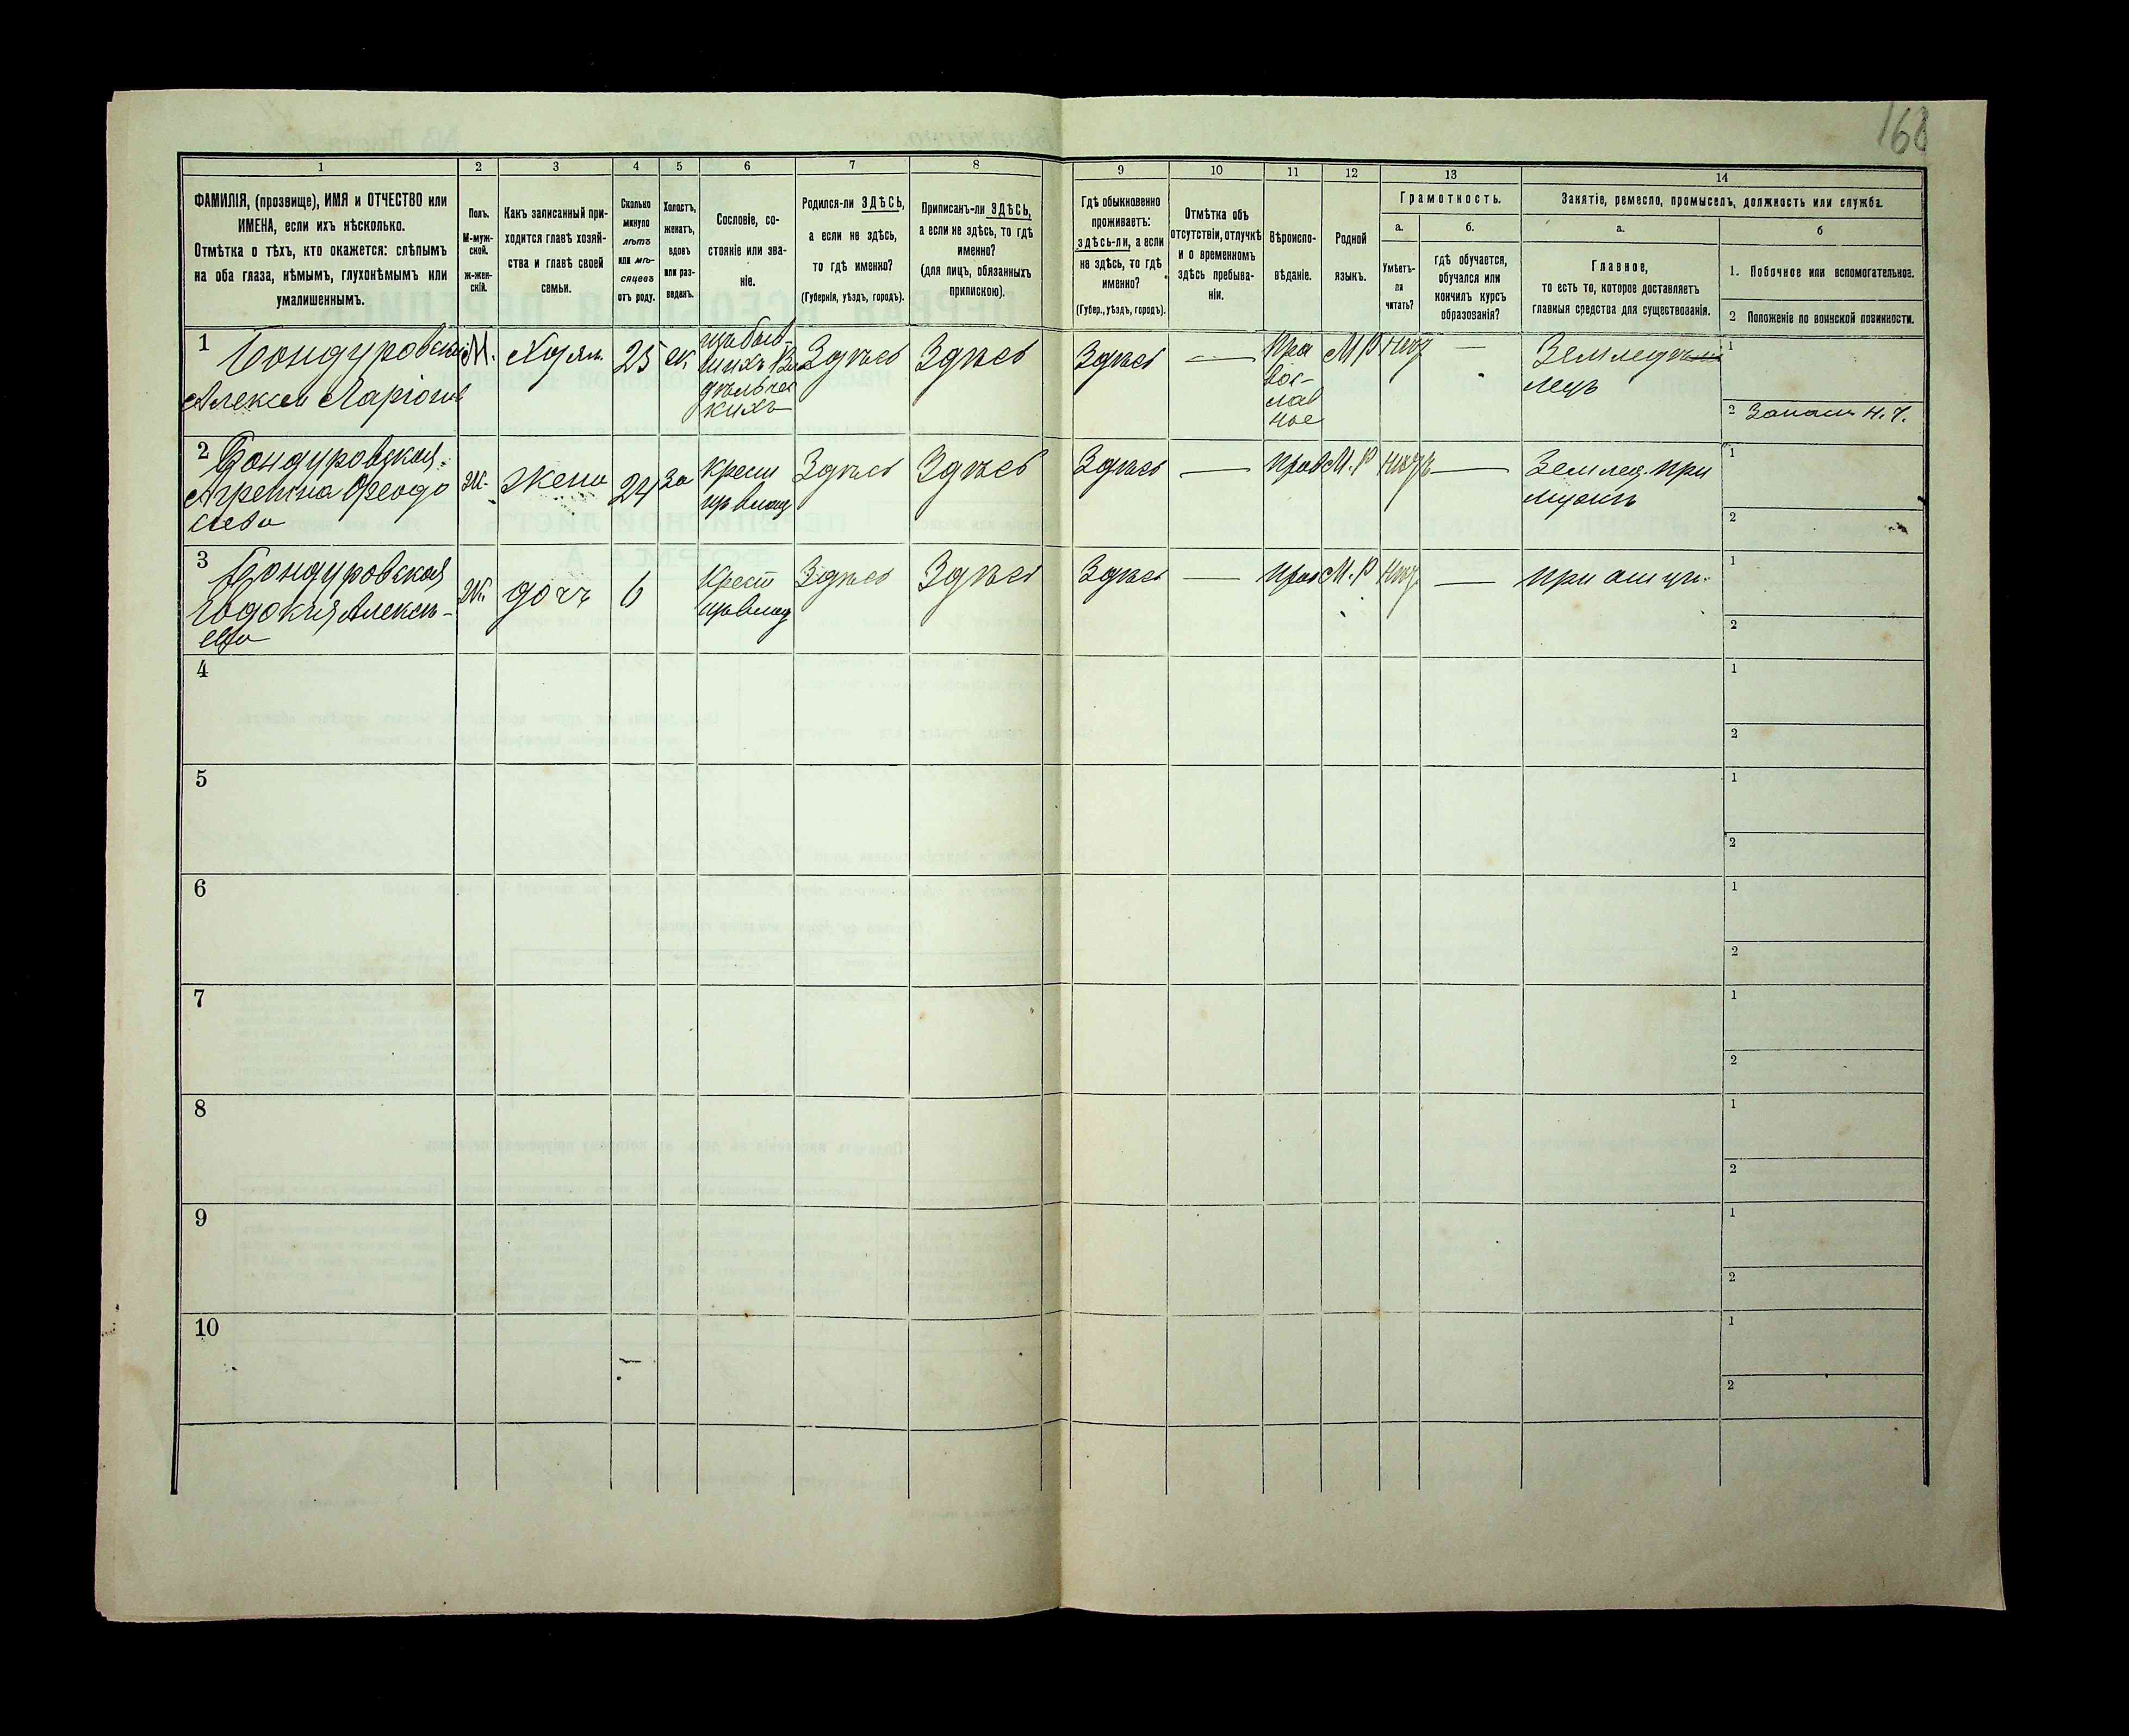 168
1
2
3
4
5
6
7
8
9
10
11
12
13
14
ФАМИЛІЯ, (прозвище), ИМЯ и ОТЧЕСТВО или
ИМЕНА, если ихъ нѣсколько.
Отмѣтка о тѣхъ, кто окажется: слѣпымъ
на оба глаза, нѣмымъ, глухонѣмымъ или
умалишеннымъ.
Полъ.
М-муж-
ской.
ж-жен-
скій.
Какъ записанный при-
ходится главѣ хозяй-
ства и главѣ своей
семьи.
Сколько
минуло
лѣтъ
или мѣ-
сяцевъ
отъ роду.
Холостъ,
женатъ,
вдовъ
или раз-
веденъ.
Сословіе, со-
стояніе или зва-
ніе.
Родился-ли ЗДѢСЬ,
а если не здѣсь,
то гдѣ именно?
(Губернія, уѣздъ, городъ).
Приписанъ-ли ЗДѢСЬ,
а если не здѣсь, то гдѣ
именно?
(для лицъ, обязанныхъ
припискою).
Гдѣ обыкновенно
проживаетъ:
здѣсь-ли, а если
не здѣсь, то гдѣ
именно?
(Губер., уѣздъ, городъ).
Отмѣтка объ
отсутствіи, отлучкѣ
и о временномъ
здѣсь пребыва-
ніи.
Вѣроиспо-
вѣданіе.
Родной
языкъ.
Грамотность.
а.
Умѣетъ-
ли
читать?
б.
гдѣ обучается,
обучался или
кончилъ курсъ
образованія?
Занятіе, ремесло, промыселъ, должность или служба.
а.
Главное,
то есть то, которое доставляетъ
главныя средства для существованія.
б
1. Побочное или вспомогательное.
2 Положеніе по воинской повинности.
1
Бондуровскій
Алексѣй Ларіонов
М.
Хозяин
25
жен
изъ быв-
шихъ Вла
дѣльчес
кихъ
Здѣсь
Здѣсь
Здѣсь
—
Пра
вос-
лав
ное
М Р
—
Земледѣ
лецъ
1
2 Запасн Н. Ч.
2
Бондуровская
Агрепина Феодо
сіева
Ж.
жена
24
За
Крест
Здѣсь
Здѣсь
Здѣсь
—
прав
М. Р
—
Землед. при
мужѣ
1
2
3
Бондуровская
Евдокія Алексѣ-
ева
Ж.
дочь
6
Крест
Здѣсь
Здѣсь
Здѣсь
—
прав
М. Р
—
при отцѣ.
1
2
4
1
2
5
1
2
6
1
2
7
1
2
8
1
2
9
1
2
10
1
2